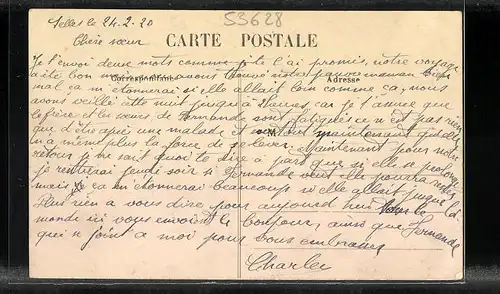 Selles le 24-2-20
53628
Chère sœur
CARTE POSTALE
Je t'envoi deux mots comme je te l'ai promis, notre voyage
a été bon nous avons trouvé notre pauvre maman bien
Correspondance
Adresse
mal ça m'étonnerai si elle allait loin comme ça, nous
avons veillé cette nuit jusqu'a 2 heures, car je t'assure que
le frère et les sœurs de Fernande sont fatigués ce n'est pas rien
que d'être après une malade et surtout maintenant qu'elle
n'a même plus la force de se lever. Maintenant pour notre
retour je ne sait quoi te dire à part que si elle se prolonge
je rentrerai jeudi soir si Fernande veut elle pourra rester
mais ça m'étonnerai beaucoup si elle allait jusque là.
Plus rien a vous dire pour aujourd'hui tous le
monde ici vous envoient le bonjour, ainsi que Fernande
qui se joint a moi pour vous embrasser
Charles